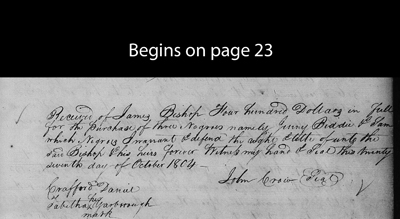 Begins on page 23
Received of James Bishop Four hundred Dollars in full
for the purchase of three Negroes namely Jinny Biddie & Sam
which Negroes I warrant & defend the right & title of unto the
said Bishop & his heirs forever Witness my hand & Seal this twenty
seventh day of October 1804
John Crow
Crafford Daniel
his
Tabitha Yarborough
mark